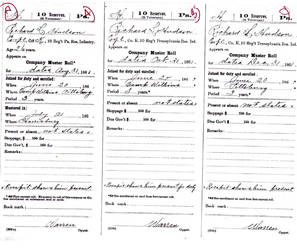 H 10 RESERVE. Pa.
(39 Volunteers.)
Richard L. Hudson
Capt., Co. C, 10 Reg't Pa. Res. Infantry.
Age 26 years.
Company Muster Roll
for dated Aug 31, 186
Joined for duty and enrolled:
When June 20, 186
Where Camp Wilkins Pittsburg
Period 3 years.*
Mustered in:
When July 21, 186
Where Harrisburg
Present or absent not stated
Stoppage, $ 100 for
Due Gov't, $ 100 for
Remarks:
Receipt shows him present.
Book mark:
Warren
Copyist.
H 10 RESERVE. Pa.
Richard L. Hudson
Capt., Co. C, 10 Reg't Pennsylvania Res. Inf.
Company Muster Roll
for dated Oct. 31, 186
Joined for duty and enrolled:
When June 20, 186
Where Camp Wilkins
Period 3 years.*
Present or absent not stated
Stoppage, $ 100 for
Due Gov't, $ 100 for
Remarks:
Receipt shows him present for duty
Book mark:
Warren
Copyist.
H 10 RESERVE. Pa.
Richard L. Hudson
Capt., Co. C, 10 Reg't Pennsylvania Res. Inf.
Company Muster Roll
for dated Dec. 31, 186
Joined for duty and enrolled:
When June 20, 186
Where Pittsburg
Period 3 years.*
Present or absent not stated
Stoppage, $ 100 for
Due Gov't, $ 100 for
Remarks:
Receipt shows him present.
Book mark:
Warren
Copyist.